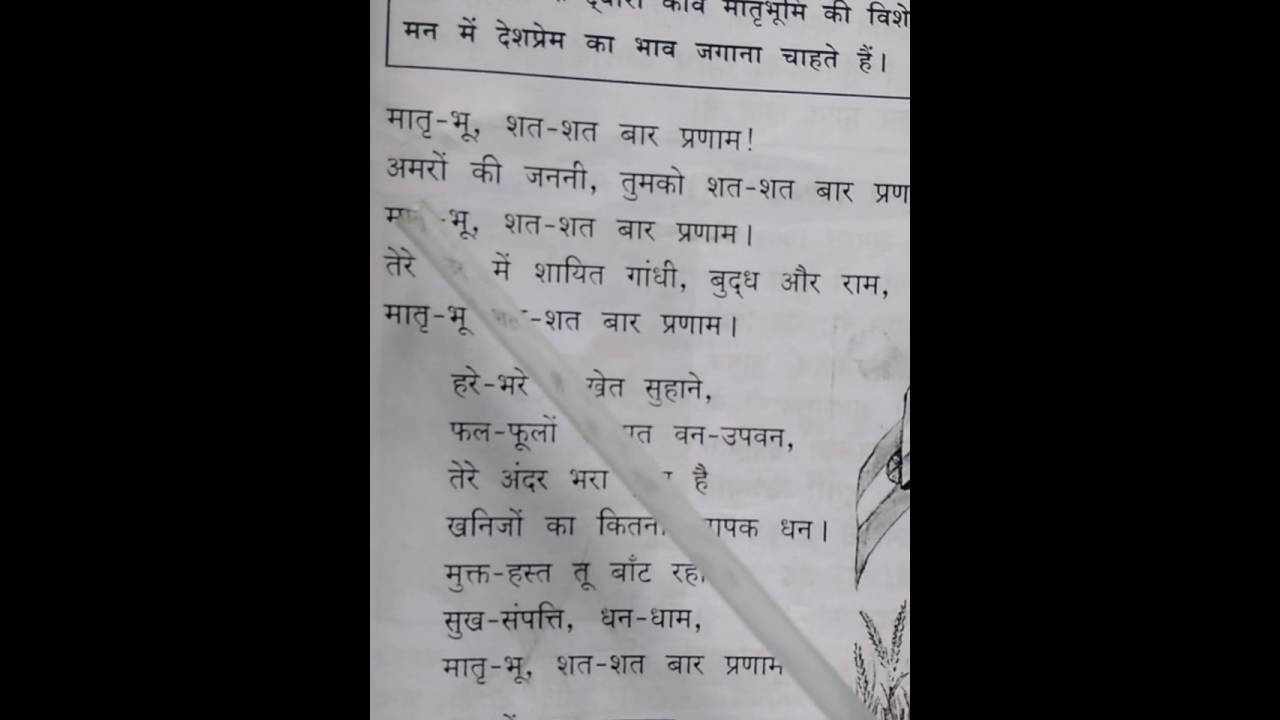 मातृभूमि की
मन में देशप्रेम का भाव जगाना चाहते हैं।
मातृ-भू, शत-शत बार प्रणाम!
अमरों की जननी, तुमको शत-शत बार
शत-शत बार प्रणाम।
तेरे में शायित गांधी, बुद्ध और राम,
मातृ-भू बार प्रणाम।
हरे-भरे खेत सुहाने,
फल-फूलों वन-उपवन,
तेरे अंदर भरा है
खनिजों का धन।
मुक्त-हस्त तू बाँट
सुख-संपत्ति, धन-धाम,
मातृ-भू, शत-शत बार